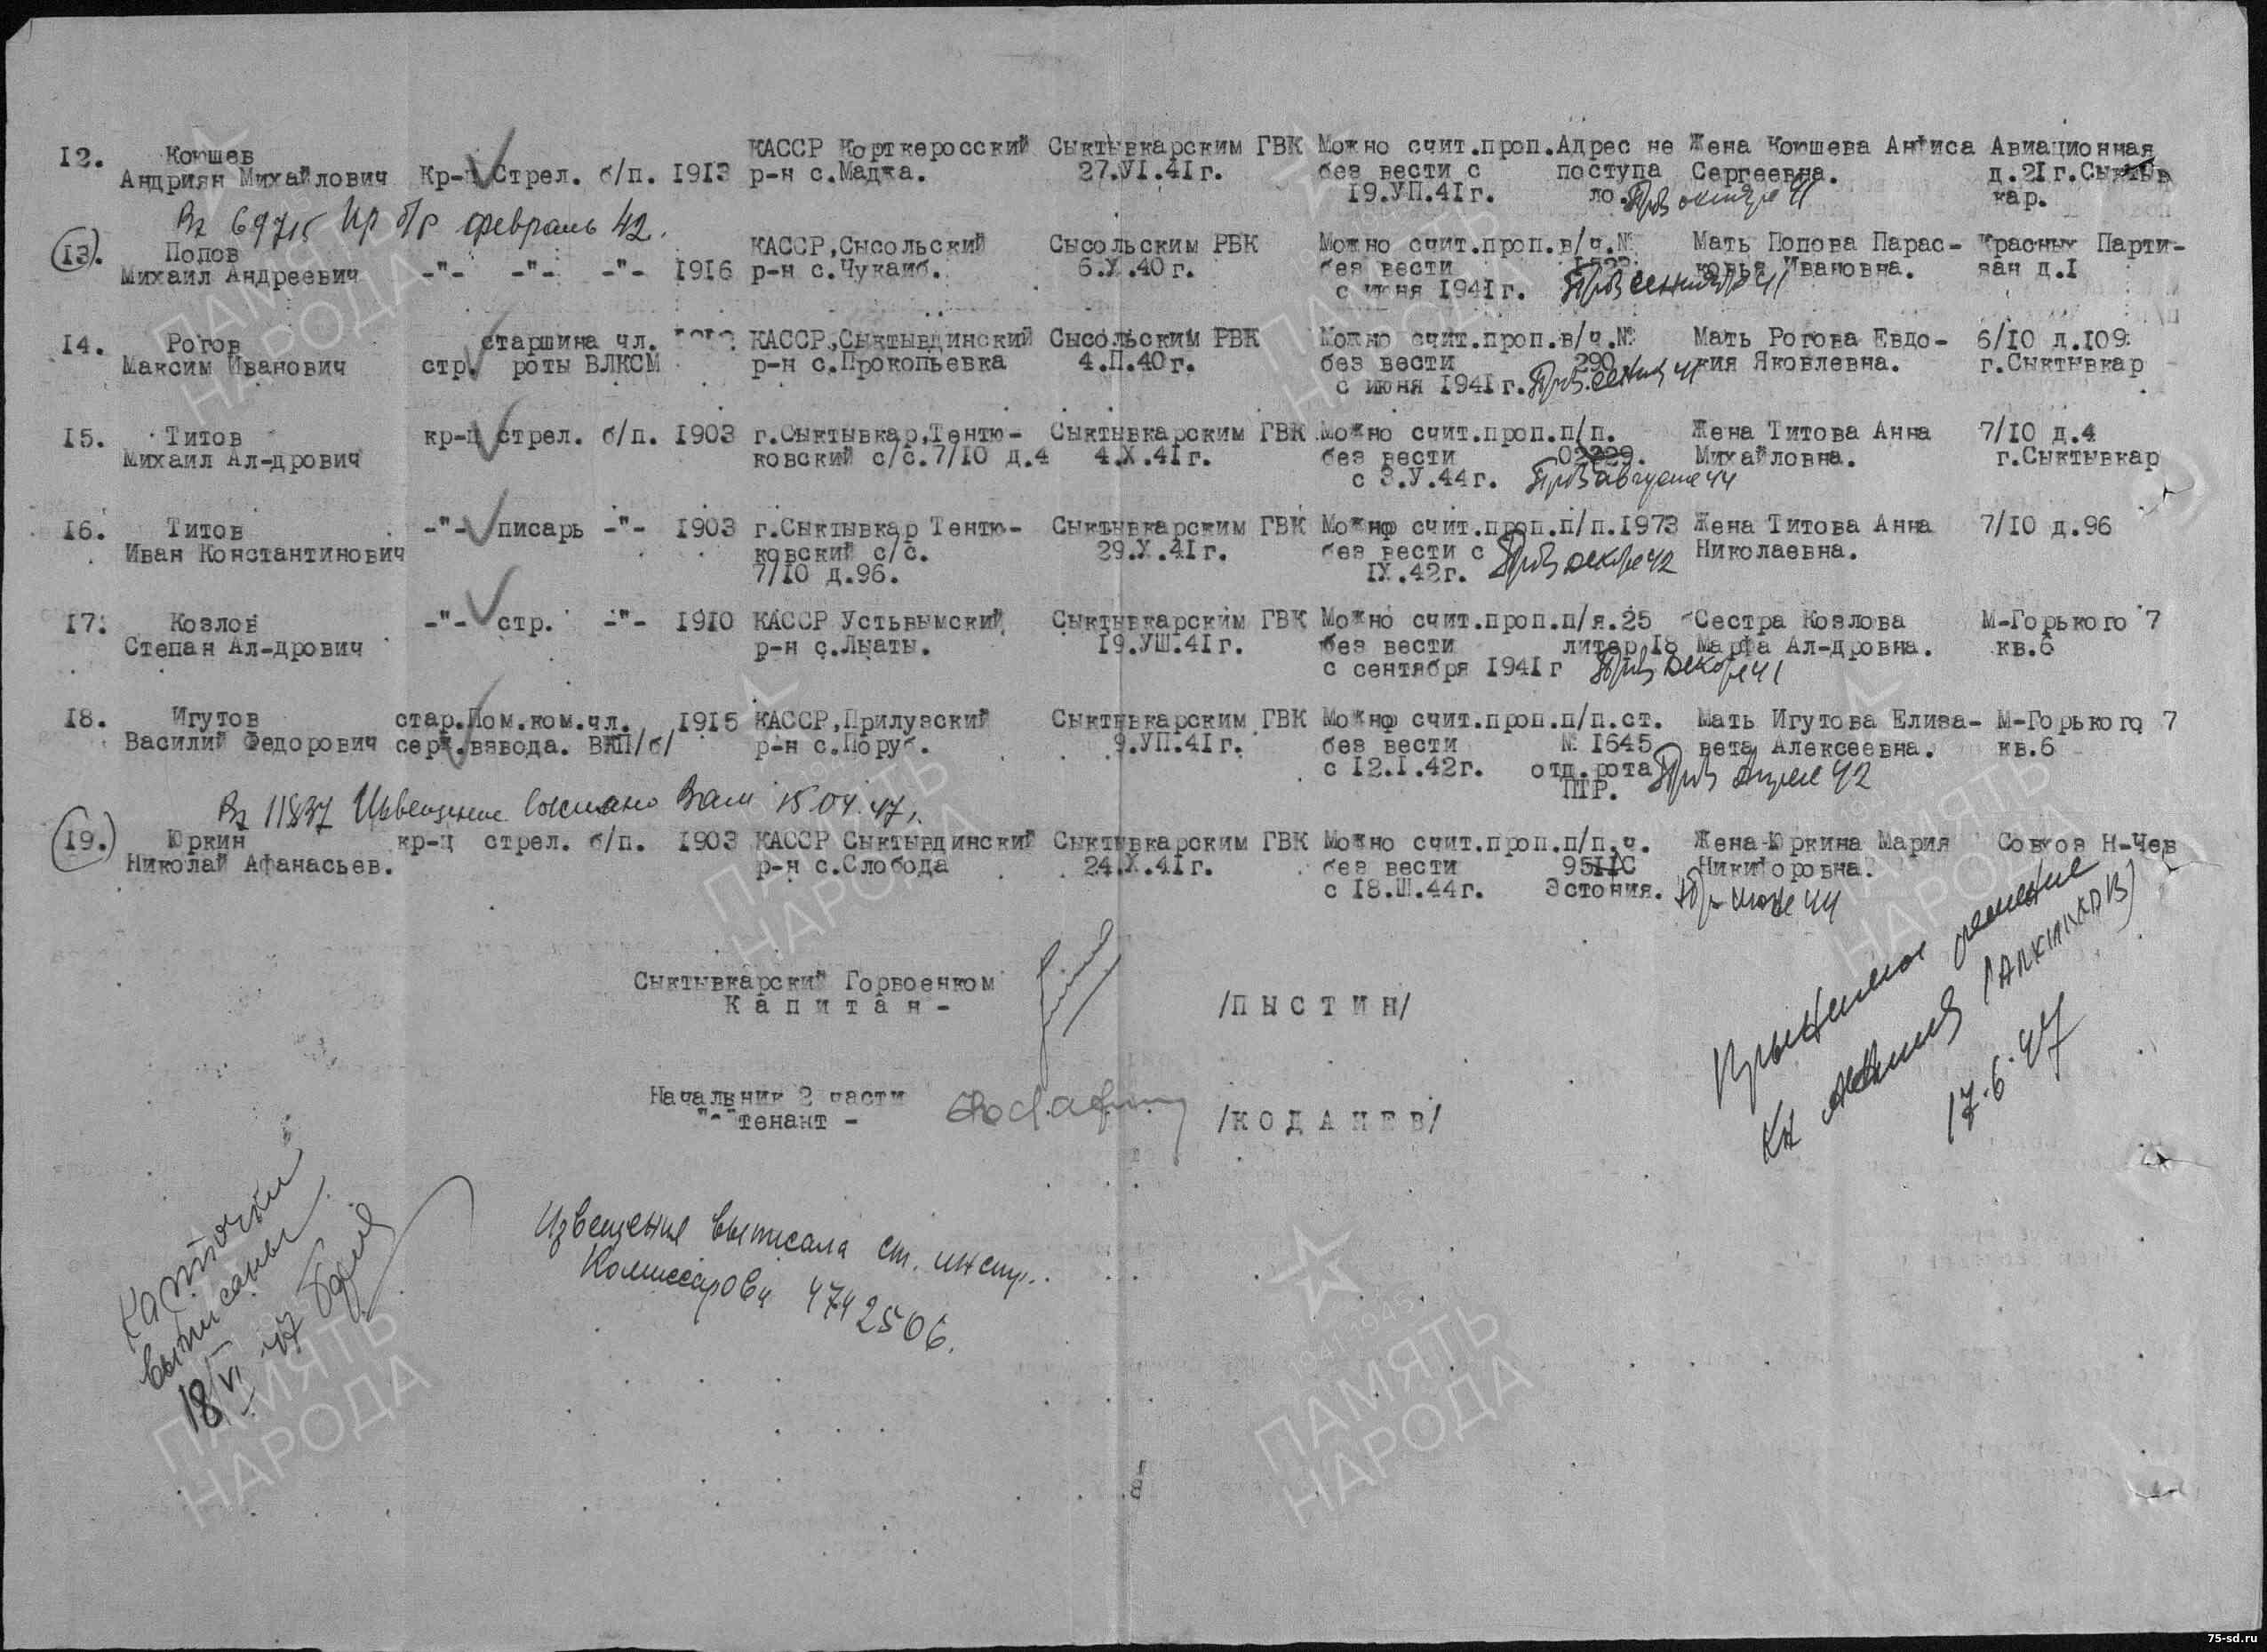 12. Коюшев КАССР Корткеросский Сыктывкарским ГВК Можно счит.проп. Адрес не Жена Коюшева Анфиса Авиационная
Андриян Михайлович Кр-ц Стрел. б/п. 1913 р-н с.Маджа. 27.VI.41г. без вести с поступа Сергеевна. д.21г.Сыктыв
19.УП.41г. ло. Проп октябре 41 кар.
Вх 69715 пр б/в февраль 42.
13. Попов КАССР,Сысольский Сысольским РВК Можно счит.проп. в/ч.№ Мать Попова Парас- Красных Парти-
Михаил Андреевич -"- -"- -"- 1916 р-н с.Чукаиб. 6.X.40г. без вести ковья Ивановна. зан д.I
с июня 1941г. сентябре 41
14. Рогов старшина чл. КАССР,Сыктывдинский Сысольским РВК Можно счит.проп. в/ч.№ Мать Рогова Евдо- 6/10 д.109
Максим Иванович стр. роты ВЛКСМ р-н с.Прокопьевка 4.П.40г. без вести 290 кия Яковлевна. г.Сыктывкар
с июня 1941г. 41
15. Титов кр-ц стрел. б/п. 1903 г.Сыктывкар,Тентю- Сыктывкарским ГВК Можно счит.проп. п/п. Жена Титова Анна 7/10 д.4
Михаил Ал-дрович ковский с/с.7/10 д.4 4.X.41г. без вести 02229. Михайловна. г.Сыктывкар
с 3.У.44г. августе 44
16. Титов -"- писарь -"- 1903 г.Сыктывкар Тентю- Сыктывкарским ГВК Можно счит.проп. п/п.1973 Жена Титова Анна 7/10 д.96
Иван Константинович ковский с/с. 29.X.41г. без вести с Николаевна.
7/10 д.96. IX.42г. декабре 42
17. Козлов -"- стр. -"- 1910 КАССР Устьвымский Сыктывкарским ГВК Можно счит.проп. п/я.25 Сестра Козлова М-Горького 7
Степан Ал-дрович р-н с.Лыаты. 19.УШ.41г. без вести литер 18 Марфа Ал-дровна. кв.6
с сентября 1941г декабре 41
18. Игутов стар. Пом.ком.чл. 1915 КАССР,Прилузский Сыктывкарским ГВК Можно счит.проп. п/п.ст. Мать Игутова Елиза- М-Горького 7
Василий Федорович серж. взвода. ВКП/б/ р-н с.Поруб. 9.УП.41г. без вести № 1645 вета Алексеевна. кв.6
с 12.I.42г. отд.рота апреле 42
ПТР.
Вх 11837 Извещение выслано Вам 15.04.47г.
19. Юркин кр-ц стрел. б/п. 1903 КАССР Сыктывдинский Сыктывкарским ГВК Можно счит.проп. п/п.ч. Жена-Юркина Мария Совхоз Н-Чев
Николай Афанасьев. р-н с.Слобода 24.X.41г. без вести Никифоровна.
с 18.Ш.44г. Эстония. июне 44
Сыктывкарский Горвоенком
Капитан - /ПЫСТИН/
Начальник 2 части
"-"тенант - /КОДАНЕВ/
17.6.47
Карточки
выписаны
18/VI 47
Извещения выписала ст. инстр.
Комиссарова 47г 2506.
ПАМЯТЬ
НАРОДА
1941 1945
75-sd.ru